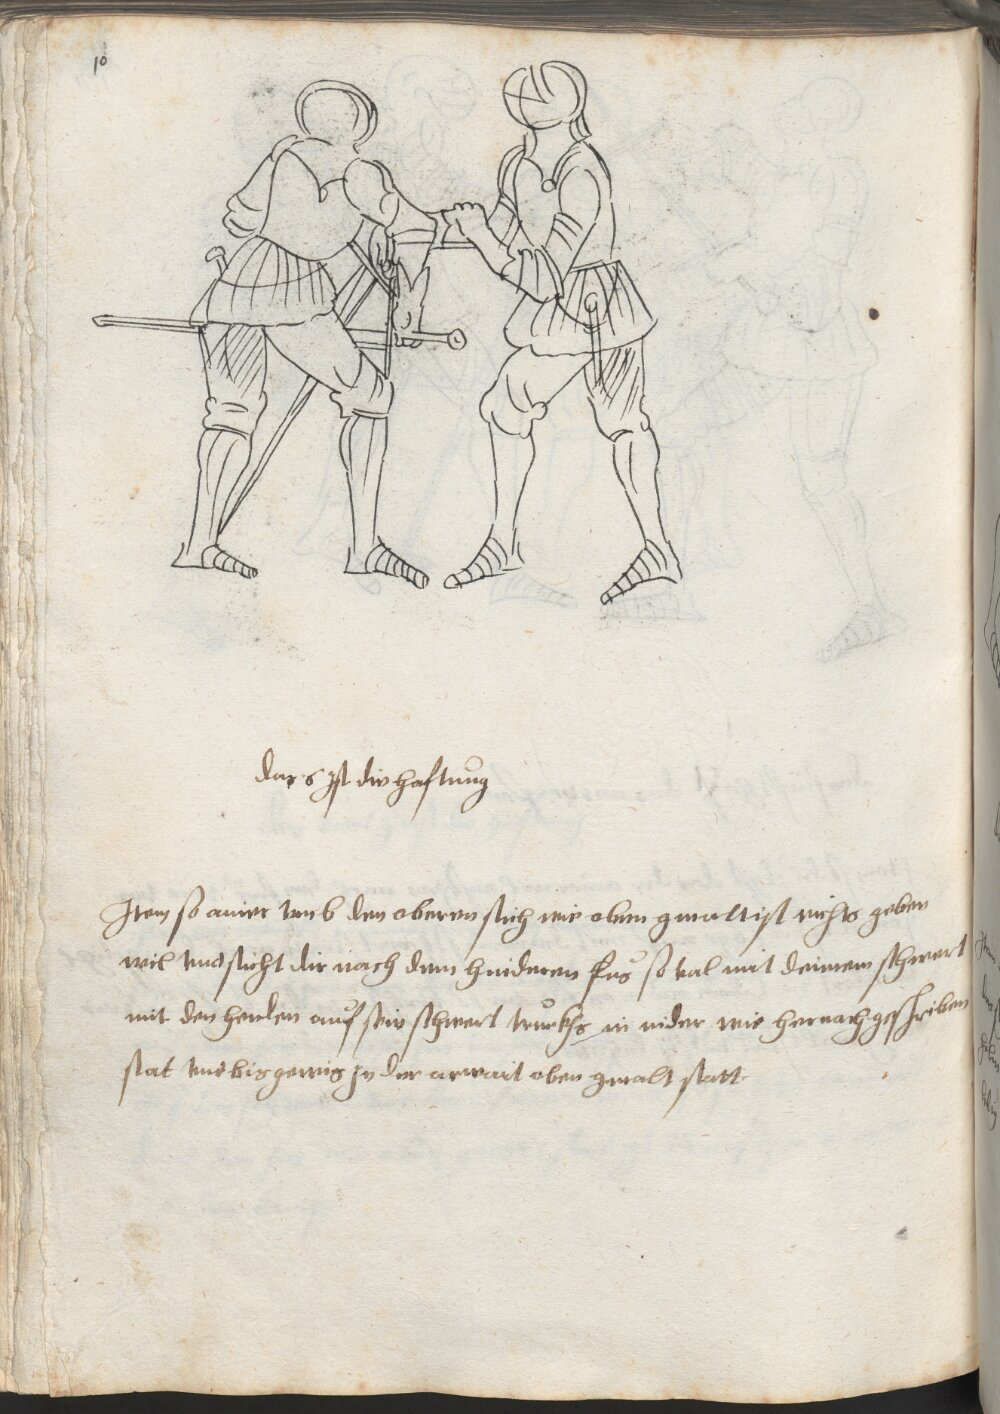 10
das ist die haftung
Item so ainer vmb den oberen stich wie oben gmalt ist nichts geben
wil vnd sticht dir nach dem hinderen fus so val mit deinem schwert
mit den henden auf sein schwert truckhs in nider wie hernach geschriben
stat vnd bis gewis In der arwait oben gmalt statt